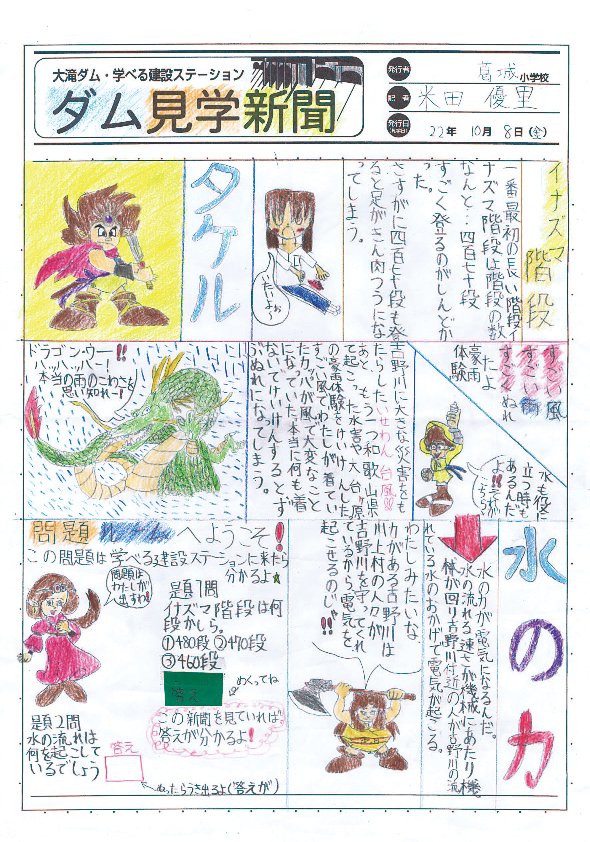 大滝ダム・学べる建設ステーション
ダム見学新聞
発行者 葛城小学校
記者 米田 優里
発行日 22年 10月 8日(金)
イナズマ階段
一番最初の長い階段イ
ナズマ階段は階段の数
なんと…四百七十段
すごく登るのがしんどか
った。
さすがに四百七十段も登
ると足がきん肉つうにな
ってしまう。
タケル
すごい風
すごい雨
すごくぬれ
たよ
豪雨
体験
吉野川に大きな災害をも
たらしたいせわん台風!!
あと、もう一つ和歌山県
で起こった水害や大台ヶ原
の豪雨体験をけいけんした
すごい風でわたしが着てい
たカッパが風で大変なこと
になっていた。本当に何も着
ないでけいけんするとず
ぶぬれになってしまう。
ドラゴン・ウー!!
ハッハッハー!
本当の雨のこわさを
思い知れー!
水の力
水も役に
立つ時も
あるんだ
よ!!
水の力が電気になるんだ。
水の流れる速さが機械にあたり機
械が回り吉野川付近の人が吉野川の流
れている水のおかげで電気が起こる。
わたしみたいな
力がある吉野川は
川上村の人々が
吉野川を守ってくれ
ているから電気を
起こせるのじゃ!!
問題 へようこそ!
この問題は学べる建設ステーションに来たら
分かるよ★
問題は
わたしが
出すわ!
題1問
イナズマ階段は何
段かしら。
①480段 ②470段
③460段
答え
めくってね
この新聞を見ていれば
答えが分かるよ!
題2問
水の流れは
何を起こして
いるでしょう
答え
ぬったらうき出るよ(答えが)